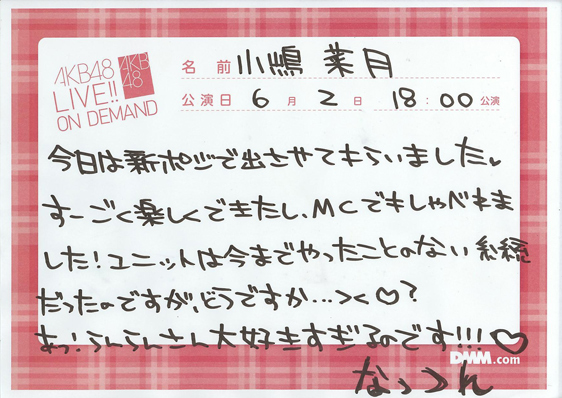 AKB48
LIVE!!
ON DEMAND
AKB
48
名 前 小嶋 菜月
公演日 6 月 2 日 18:00 公演
今日は新ポジで出させてもらいました♥
すーごく楽しくできたし、MCでもしゃべれま
した!ユニットは今までやったことのない系統
だったのですが、どうですか…><♡?
あっ!らんらんさん大好きすぎるのです!!!♡
DMM.com
なっつん